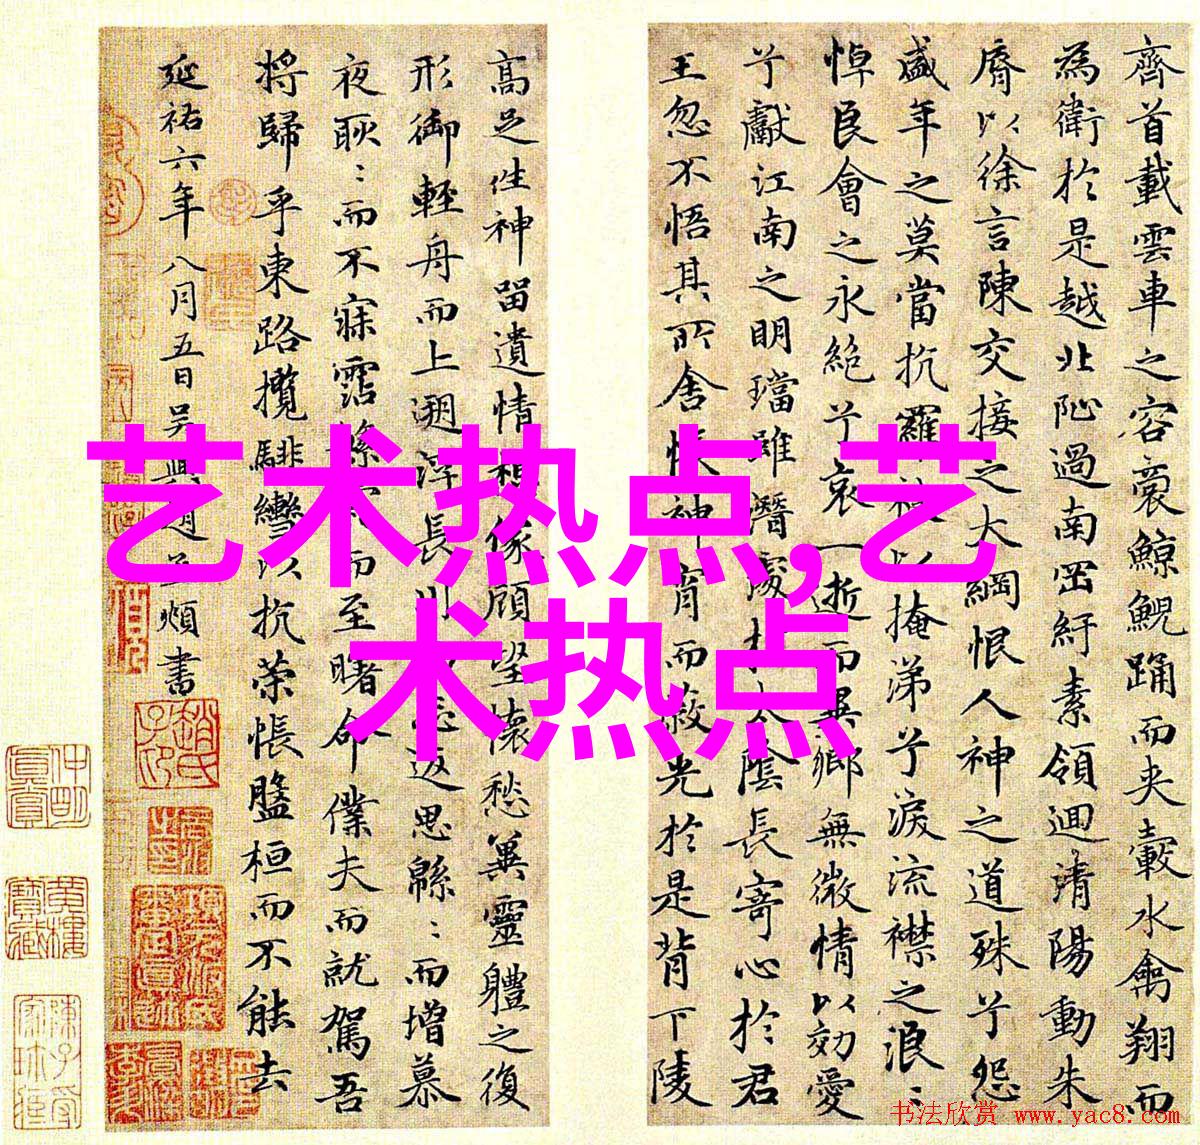 齊首載雲車之容裔鯨鯢踊而夾轂水禽翔而
為衛於是越北沚過南岡紆素領迴清陽動朱
脣以徐言陳交接之大綱恨人神之道殊兮怨
盛年之莫當抗羅袂以掩涕兮淚流襟之浪〻
悼良會之永絕兮哀一逝而異鄉無微情以効愛
兮獻江南之明璫雖潛處於太陰長寄心於君
王忽不悟其所舍悵神宵而蔽光於是背下陵
高足往神留遺情想像顧望懷愁冀靈體之復
形御輕舟而上遡浮長川忘返思緜〻而增慕
夜耿〻而不寐霑而至曙命僕夫而就駕吾
將歸乎東路攬騑轡以抗策悵盤桓而不能去
延祐六年八月五日吳興趙孟頫書
艺术热点,艺
术热点
书法欣赏 www.yac8.com